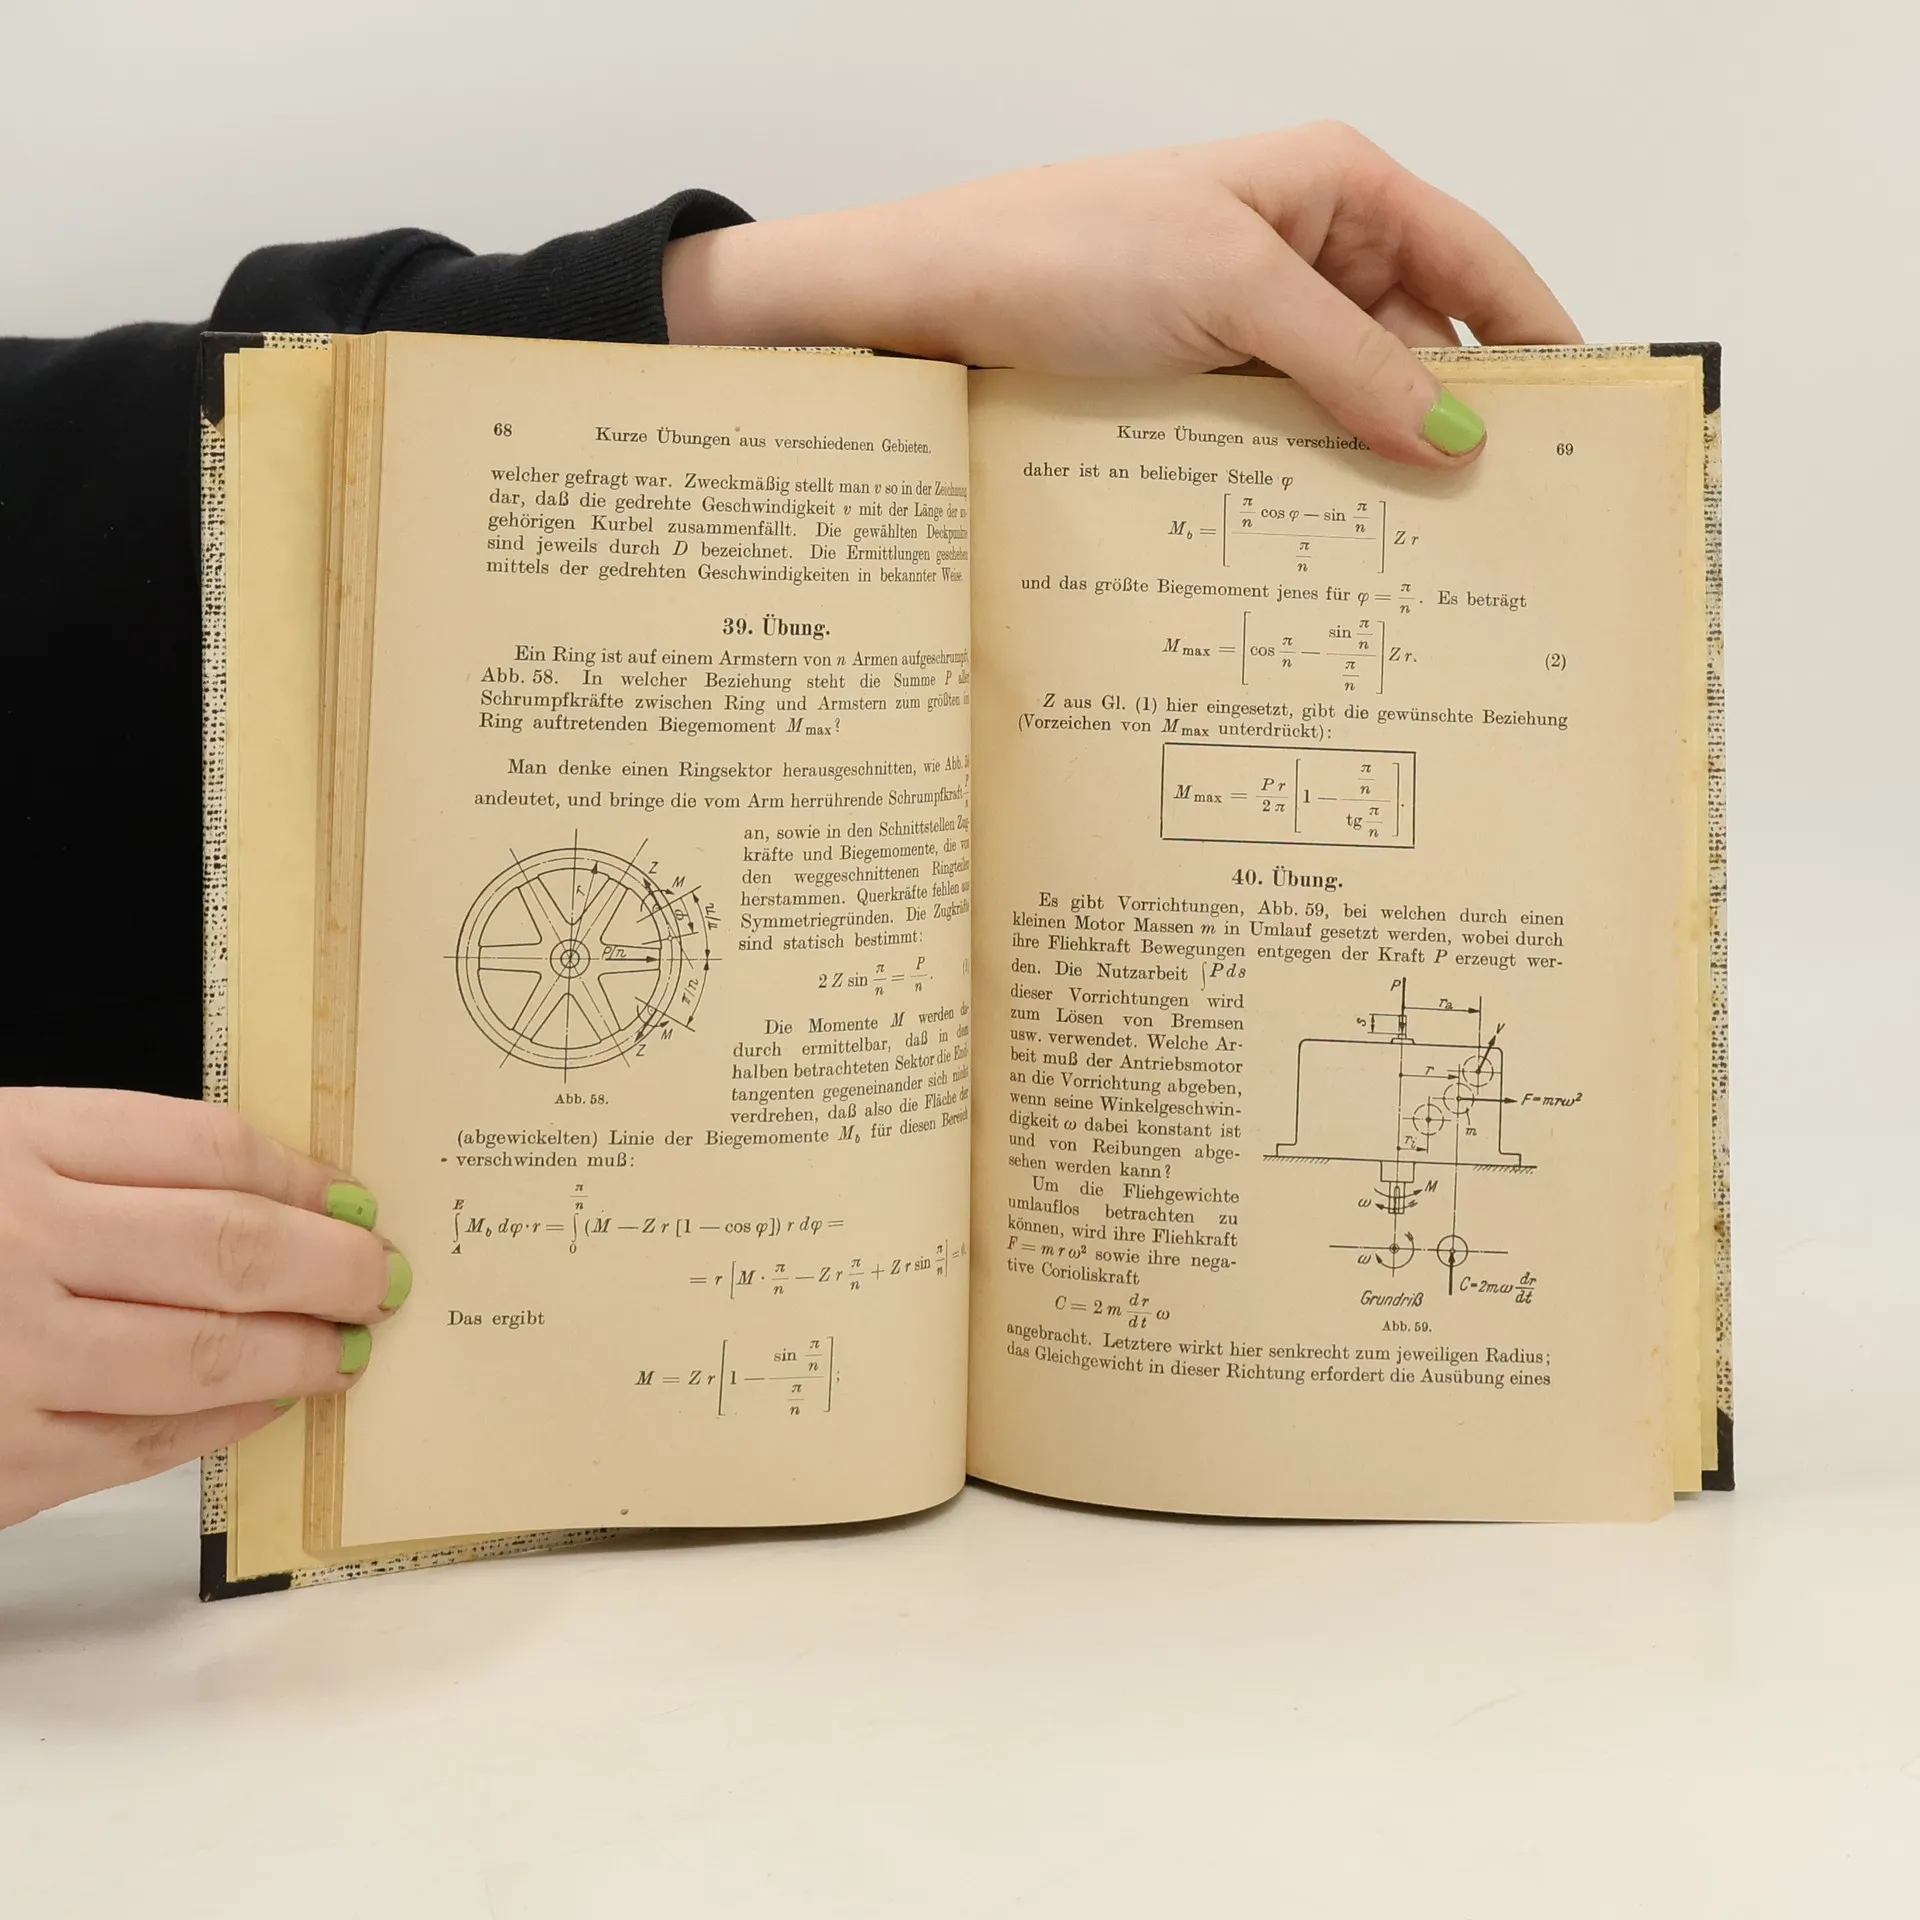 68
Kurze Übungen aus verschiedenen Gebieten.
welcher gefragt war. Zweckmäßig stellt man v so in der Zeichnung
dar, daß die gedrehte Geschwindigkeit v mit der Länge der
gehörigen Kurbel zusammenfällt. Die gewählten Deckpunkte
sind jeweils durch D bezeichnet. Die Ermittlungen geschehen
mittels der gedrehten Geschwindigkeiten in bekannter Weise.
39. Übung.
Ein Ring ist auf einem Armstern von n Armen aufgeschrumpft,
Abb. 58. In welcher Beziehung steht die Summe P aller
Schrumpfkräfte zwischen Ring und Armstern zum größten im
Ring auftretenden Biegemoment M max?
Man denke einen Ringsektor herausgeschnitten, wie Abb.
andeutet, und bringe die vom Arm herrührende Schrumpfkraft P/n
an, sowie in den Schnittstellen Zug-
kräfte und Biegemomente, die von
den weggeschnittenen Ringteilen
herstammen. Querkräfte fehlen aus
Symmetriegründen. Die Zugkräfte
sind statisch bestimmt:
2 Z sin π/n = P/n. (1)
Die Momente M werden da-
durch ermittelbar, daß in dem
halben betrachteten Sektor die End-
tangenten gegeneinander sich nicht
verdrehen, daß also die Fläche der
Z
M
r
φ
π/n
P/n
π/n
M
Z
Abb. 58.
(abgewickelten) Linie der Biegemomente M_b für diesen Bereich
verschwinden muß:
∫_A^E M_b dφ·r = ∫_0^{π/n} (M — Z r [1 — cos φ]) r dφ =
= r [M · π/n — Z r π/n + Z r sin π/n] = 0.
Das ergibt
M = Z r [1 — sin π/n / π/n];
Kurze Übungen aus
69
daher ist an beliebiger Stelle φ
M_b = [(π/n cos φ — sin π/n) / π/n] Z r
und das größte Biegemoment jenes für φ = π/n. Es beträgt
M max = [cos π/n — sin π/n / π/n] Z r. (2)
Z aus Gl. (1) hier eingesetzt, gibt die gewünschte Beziehung
(Vorzeichen von M max unterdrückt):
M max = P r / 2 π [1 — π/n / tg π/n].
40. Übung.
Es gibt Vorrichtungen, Abb. 59, bei welchen durch einen
kleinen Motor Massen m in Umlauf gesetzt werden, wobei durch
ihre Fliehkraft Bewegungen entgegen der Kraft P erzeugt wer-
den. Die Nutzarbeit ∫P ds
dieser Vorrichtungen wird
zum Lösen von Bremsen
usw. verwendet. Welche Ar-
beit muß der Antriebsmotor
an die Vorrichtung abgeben,
wenn seine Winkelgeschwin-
digkeit ω dabei konstant ist
und von Reibungen abge-
sehen werden kann?
Um die Fliehgewichte
umlauflos betrachten zu
können, wird ihre Fliehkraft
F = m r ω² sowie ihre nega-
tive Corioliskraft
C = 2 m dr/dt ω
P
r_a
s
V
r
F=mrω²
m
r_i
M
ω
ω
C=2mω dr/dt
Grundriß
Abb. 59.
angebracht. Letztere wirkt hier senkrecht zum jeweiligen Radius;
das Gleichgewicht in dieser Richtung erfordert die Ausübung eines